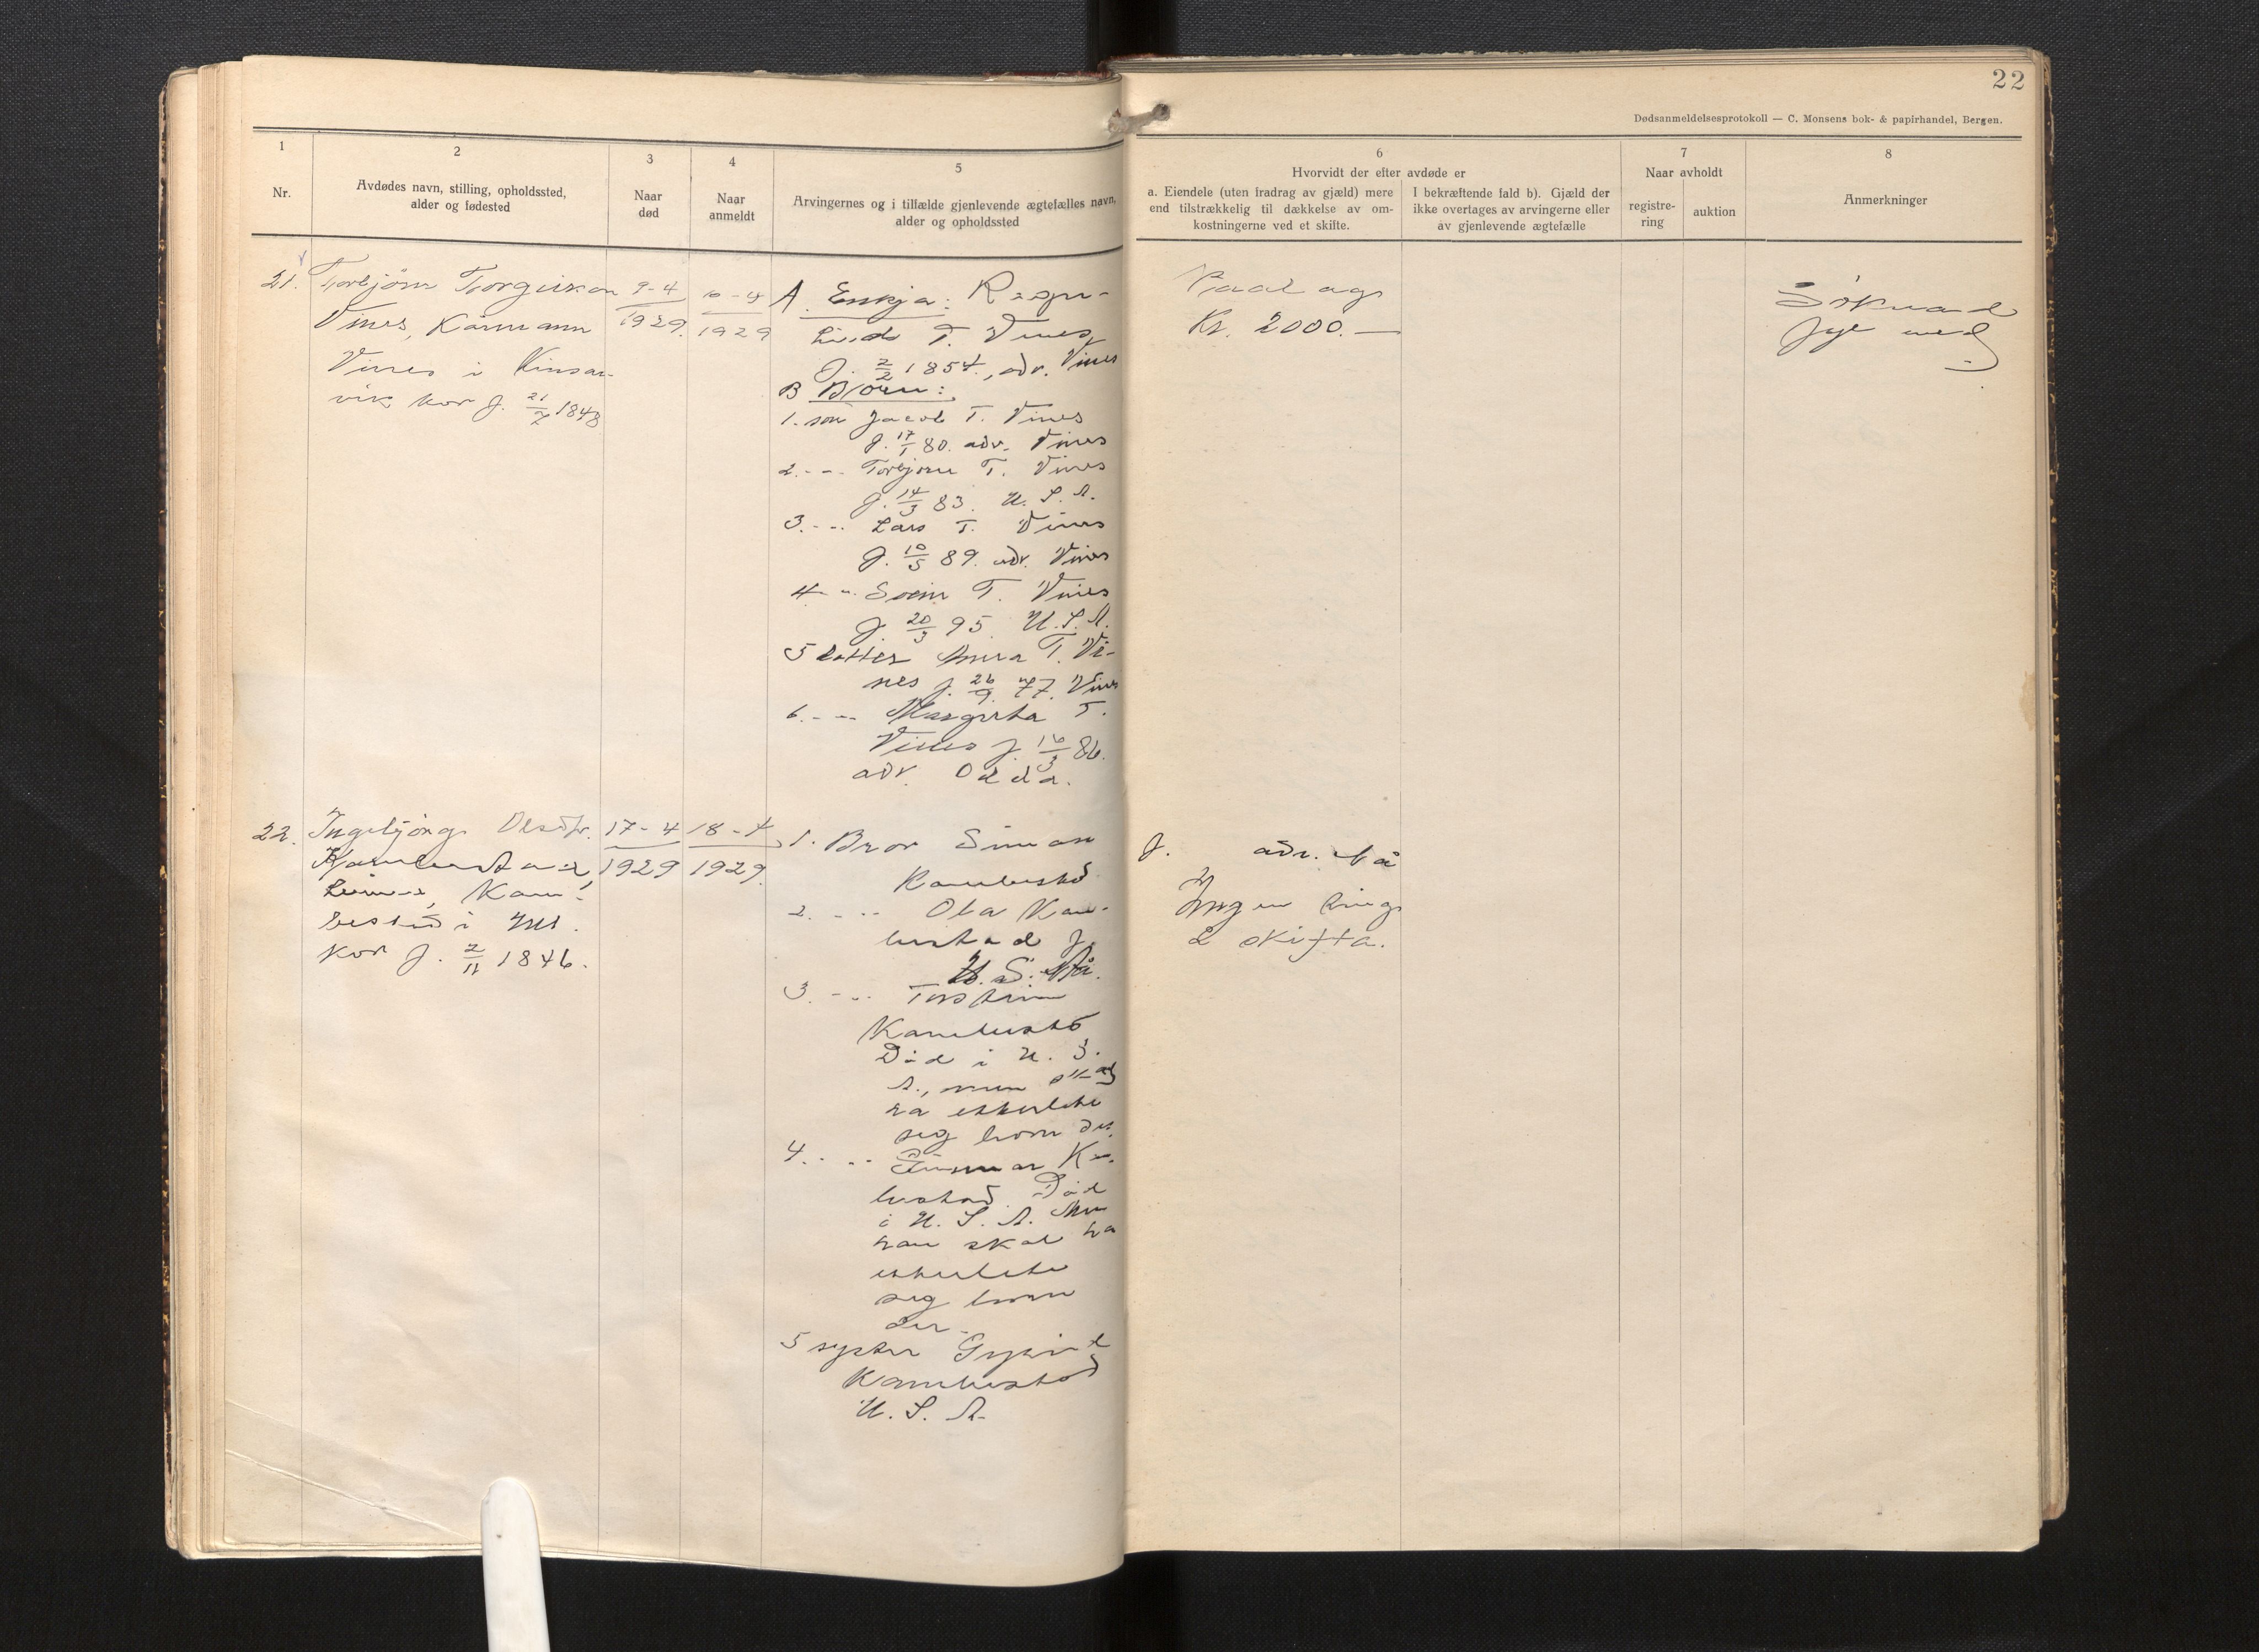 22
Dødsanmeldelsesprotokoll — C. Monsens bok- & papirhandel, Bergen.
1
Nr.
2
Avdødes navn, stilling, opholdssted,
alder og fødested
3
Naar
død
4
Naar
anmeldt
5
Arvingernes og i tilfælde gjenlevende ægtefælles navn,
alder og opholdssted
6
Hvorvidt der efter avdøde er
a. Eiendele (uten fradrag av gjæld) mere
end tilstrækkelig til dækkelse av om-
kostningerne ved et skifte.
I bekræftende fald b). Gjæld der
ikke overtages av arvingerne eller
av gjenlevende ægtefælle
7
Naar avholdt
registre-
ring
auktion
8
Anmerkninger
21.
Torbjörn Torgeirson
Vines, Kårmann
Vines i Kinsar-
vik kor f. 21/7 1848
9-4
1929.
10-4
1929
A. Enkja: Ragn-
hild T. Vines
f. 2/2 1854., adr. Vines
B Born:
1. son Jacob T. Vines
f. 17/1 80. adr. Vines
2. - " - Torbjørn T. Vines
f. 14/3 83. U. S. A.
3. - " - Lars T. Vines
f. 10/5 89. adr. Vines
4. - " - Svein T. Vines
f. 20/3 95. U. S. A.
5 dotter Anna T. Vi-
nes f. 26/9 77. Vines
6. - " - Margreta T.
Vines f. 16/3 86.
adr. Odda.
Kr. 2000.—
Söknad
fylt med
22.
Ingebjörg Olsdtr.
Kambestad
Kam-
bestad i Ull.
kor f. 2/11 1846.
17-4
1929
18-4
1929.
1. Bror Simon
Kambestad
2. - " - Ola Kam-
bestad f.
3. - " - Torstein
Kambestad
Död i U. S.
A., men skal
ha etterlete
seg born der.
4. - " - Gunnar Kam-
bestad. Död
i U. S. A. Men
han skal ha
etterlete
seg born
der.
5 syster Gyrid
Kambestad
U. S. A.
f. adr. Nå
Ingen ting
å skifta.